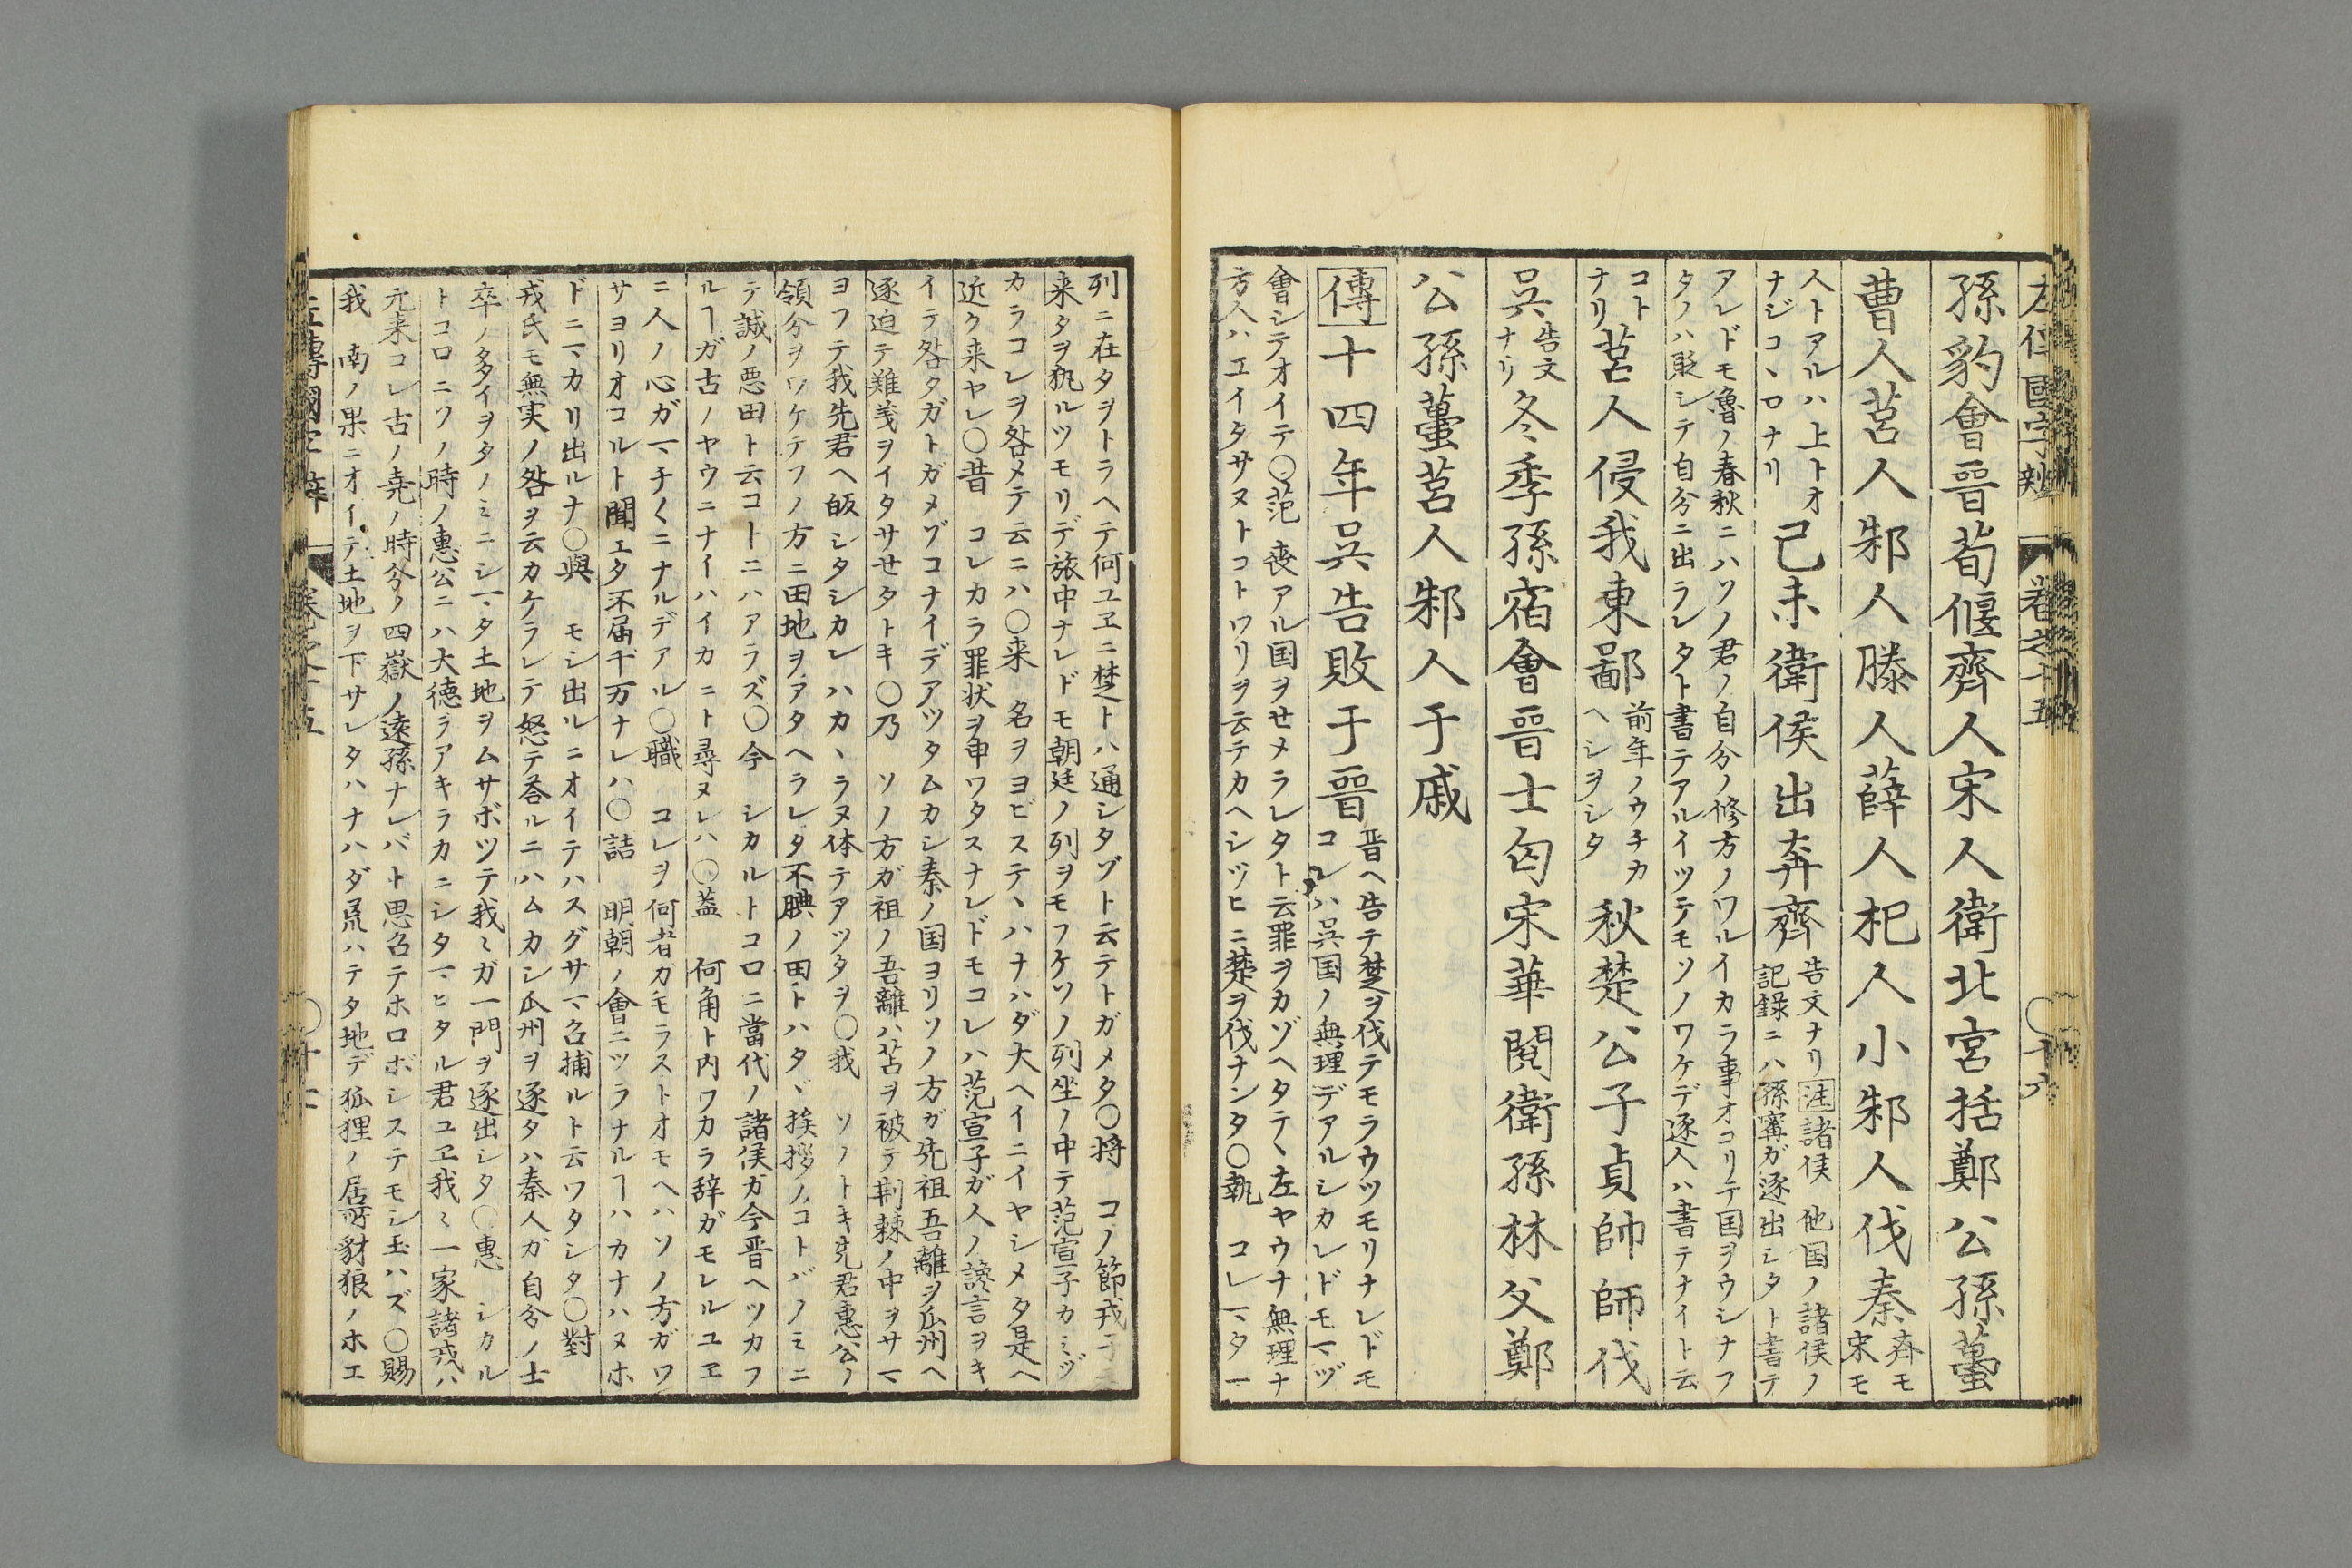 左傳國字辨
卷之十五
孫豹會晉荀偃齊人宋人衛北宮括鄭公孫蠆
曹人莒人邾人滕人薛人杞人小邾人伐秦齊モ
宋モ
人トアルハ上トオ
ナジコヽロナリ
己未衛侯出奔齊
告文ナリ注諸侯他国ノ諸侯ノ
記録ニハ孫甯ガ逐出シタト書テ
アレドモ魯ノ春秋ニハソノ君ノ自分ノ修方ノワルイカラ事オコリテ国ヲウシナフ
タノハ貶シテ自分ニ出ラレタト書テアルイツテモソノワケデ逐人ハ書テナイト云
コト
ナリ
莒人侵我東鄙
前年ノウチカ
ヘシヲシタ
秋楚公子貞帥師伐
吳
告文
ナリ
冬季孫宿會晉士匄宋華閱衛孫林父鄭
公孫蠆莒人邾人于戚
傳十四年吳告敗于晉
晉ヘ告テ楚ヲ伐テモラウツモリナレドモ
コレハ呉国ノ無理デアルシカレドモマヅ
會シテオイテ〇范　喪アル国ヲせメラレタト云罪ヲカゾヘタテヽ左ヤウナ無理ナ
方人ハエイタサヌトコトワリヲ云テカヘシヅヒニ楚ヲ伐ナンタ〇執　コレマタ一
列ニ在タヲトラヘテ何ユヱニ楚トハ通シタゾト云テトガメタ〇将　コノ節戎子
来タヲ執ルツモリデ旅中ナレドモ朝廷ノ列ヲモフケソノ列坐ノ中テ范宣子カミヅ
カラコレヲ咎メテ云ニハ〇来　名ヲヨビステヽハナハダ大ヘイニイヤシメタ是ヘ
近ク来ヤレ〇昔　コレカラ罪状ヲ申ワタスナレドモコレハ范宣子ガ人ノ讒言ヲキ
イテ咎タガトガメゾコナイデアツタムカシ秦ノ国ヨリソノ方ガ先祖吾離ヲ瓜州ヘ
逐迫テ難義ヲイタサせタトキ〇乃　ソノ方ガ祖ノ吾離ハ苫ヲ被テ荊棘ノ中ヲサマ
ヨフテ我先君ヘ皈シタシカレハカヽラヌ体テアツタヲ〇我　ソノトキ先君惠公ノ
領分ヲワケテフノ方ニ田地ヲアタヘラレタ不腆ノ田トハタヾ挨拶ノコトバノミニ
テ誠ノ悪田ト云コトニハアラズ〇今　シカルトコロニ當代ノ諸侯ガ今晋ヘツカフ
ルヿガ古ノヤウニナイハイカニト尋ヌレハ〇蓋　何角ト内ワカラ辞ガモレルユヱ
ニ人ノ心ガマチ〱ニナルデアル〇職　コレヲ何者ガモラストオモヘハソノ方ガワ
サヨリオコルト聞エタ不届千万ナレハ〇詰　明朝ノ會ニツラナルヿハカナハヌホ
ドニマカリ出ルナ〇與　モシ出ルニオイテハスグサマ召捕ルト云ワタシタ〇對
戎氏モ無実ノ咎ヲ云カケラレテ怒テ荅ルニハムカシ瓜州ヲ逐タハ秦人ガ自分ノ士
卒ノ多イヲタノミニシマタ土地ヲムサボツテ我〻ガ一門ヲ逐出シタ〇惠　シカル
トコロニワノ時ノ惠公ニハ大徳ヲアキラカニシタマヒタル君ユヱ我〻一家諸戎ハ
元来コレ古ノ堯ノ時分ノ四嶽ノ遠孫ナレバト思召テホロボシステモシ玉ハズ〇賜
我　南ノ果ニオイテ土地ヲ下サレタハナハダ荒ハテタ地デ狐狸ノ居所豺狼ノホエ